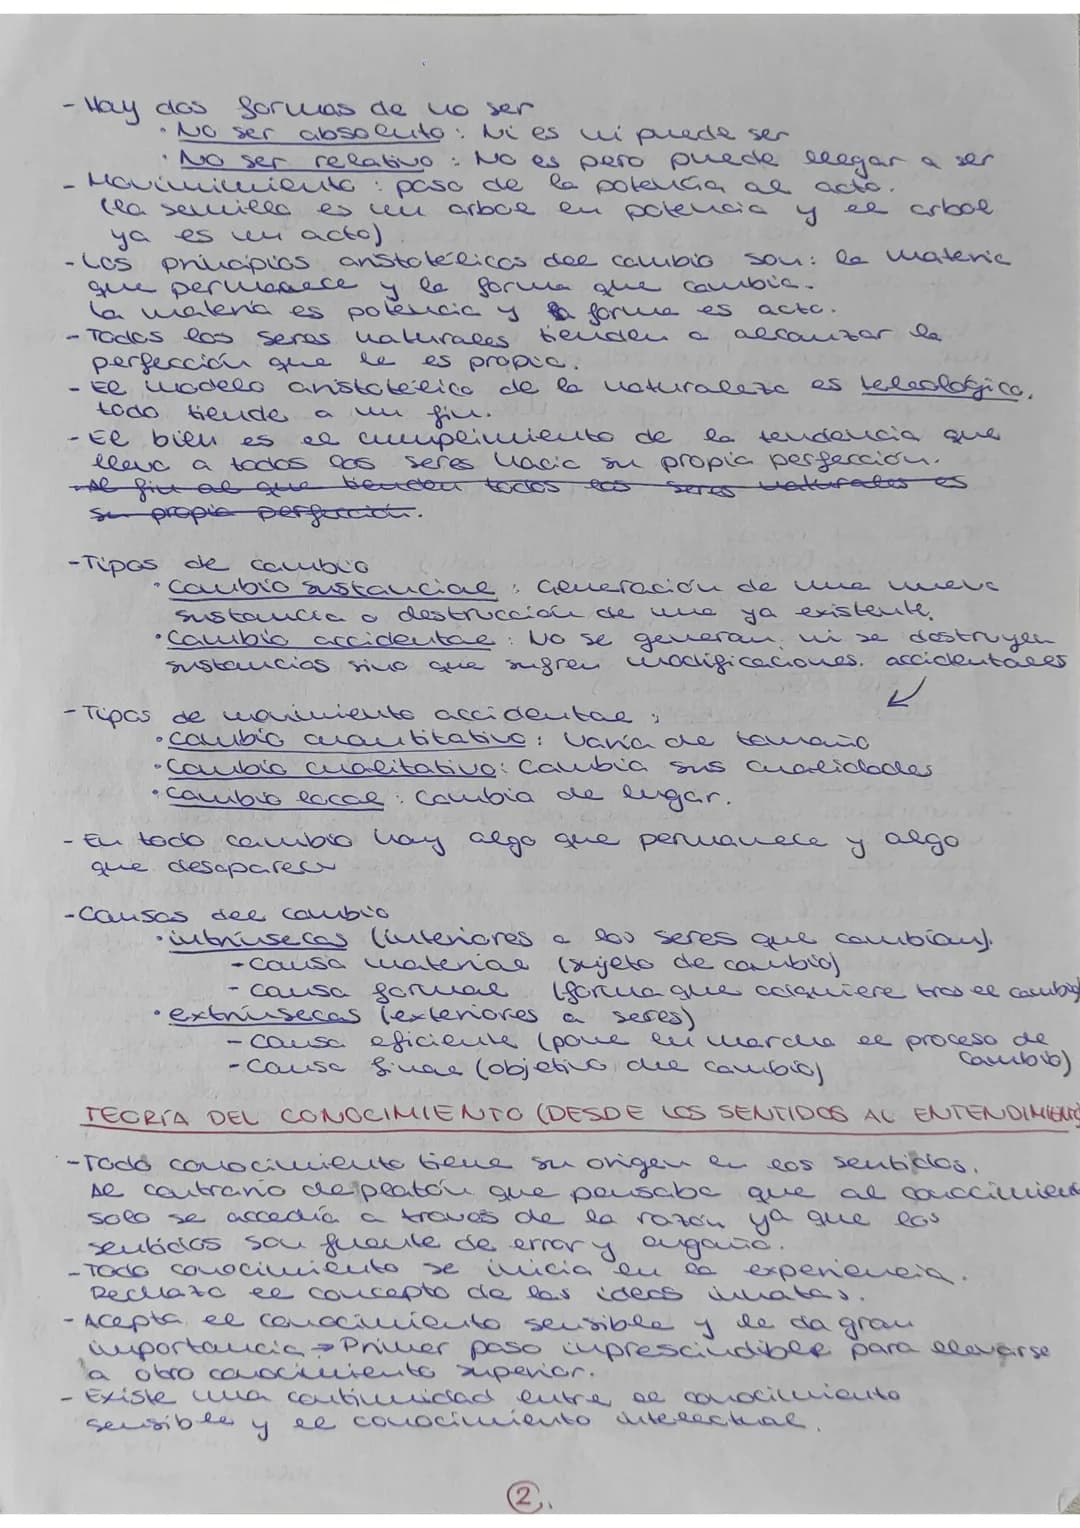 - Hay dos formas de no ser
· No ser absoluto: Ni es ni puede ser
· No ser relativo: No es pero puede llegar a ser
- Movimimiento: paso de la potencia al acto.
(la semilla es un arbol en potencia y el arbol
ya es un acto)
- Los principios aristotélicos del cambio son: la materia
que permanece y la forma que cambia.
La materia es potencia y la forma es acto.
- Todos los seres naturales tienden a alcanzar la
perfección que le es propia.
- El modelo aristotélico de la naturaleza es teleológico,
todo tiende a un fin.
- El bien es el cumplimiento de la tendencia que
lleva a todos los seres hacia su propia perfección.
- El fin al que tienden todos los seres naturales es
su propia perfección.
- Tipos de cambio
· Cambio sustancial: Generación de una nueva
sustancia o destrucción de una ya existente.
· Cambio accidental: No se generan ni se destruyen
sustancias sino que sufren modificaciones. accidentales
- Tipos de movimiento accidental:
· Cambio cuantitativo: Varía de tamaño
· Cambio cualitativo: Cambia sus cualidades
· Cambio local: Cambia de lugar.
- En todo cambio hay algo que permanece y algo
que desaparece
- Causas del cambio
· intrínsecas (interiores a los seres que cambian).
- Causa material (sujeto de cambio)
- Causa formal (forma que adquiere tras el cambio)
· extrínsecas (exteriores a seres)
- Causa eficiente (pone en marcha el proceso de
cambio)
- Causa final (objetivo del cambio)
TEORÍA DEL CONOCIMIENTO (DESDE LOS SENTIDOS AL ENTENDIMIENTO
- Todo conocimiento tiene su origen en los sentidos.
Al contrario de platón que pensaba que al conocimient
solo se accedía a traves de la razón ya que los
sentidos son fuente de error y engaño.
- Todo conocimiento se inicia en la experiencia.
Rechaza el concepto de las ideas innatas.
- Acepta el conocimiento sensible y le da gran
importancia → Primer paso inprescindible para elevarse
a otro conocimiento superior.
- Existe una continuidad entre el conocimiento
sensible y el conocimiento intelectual.
2.